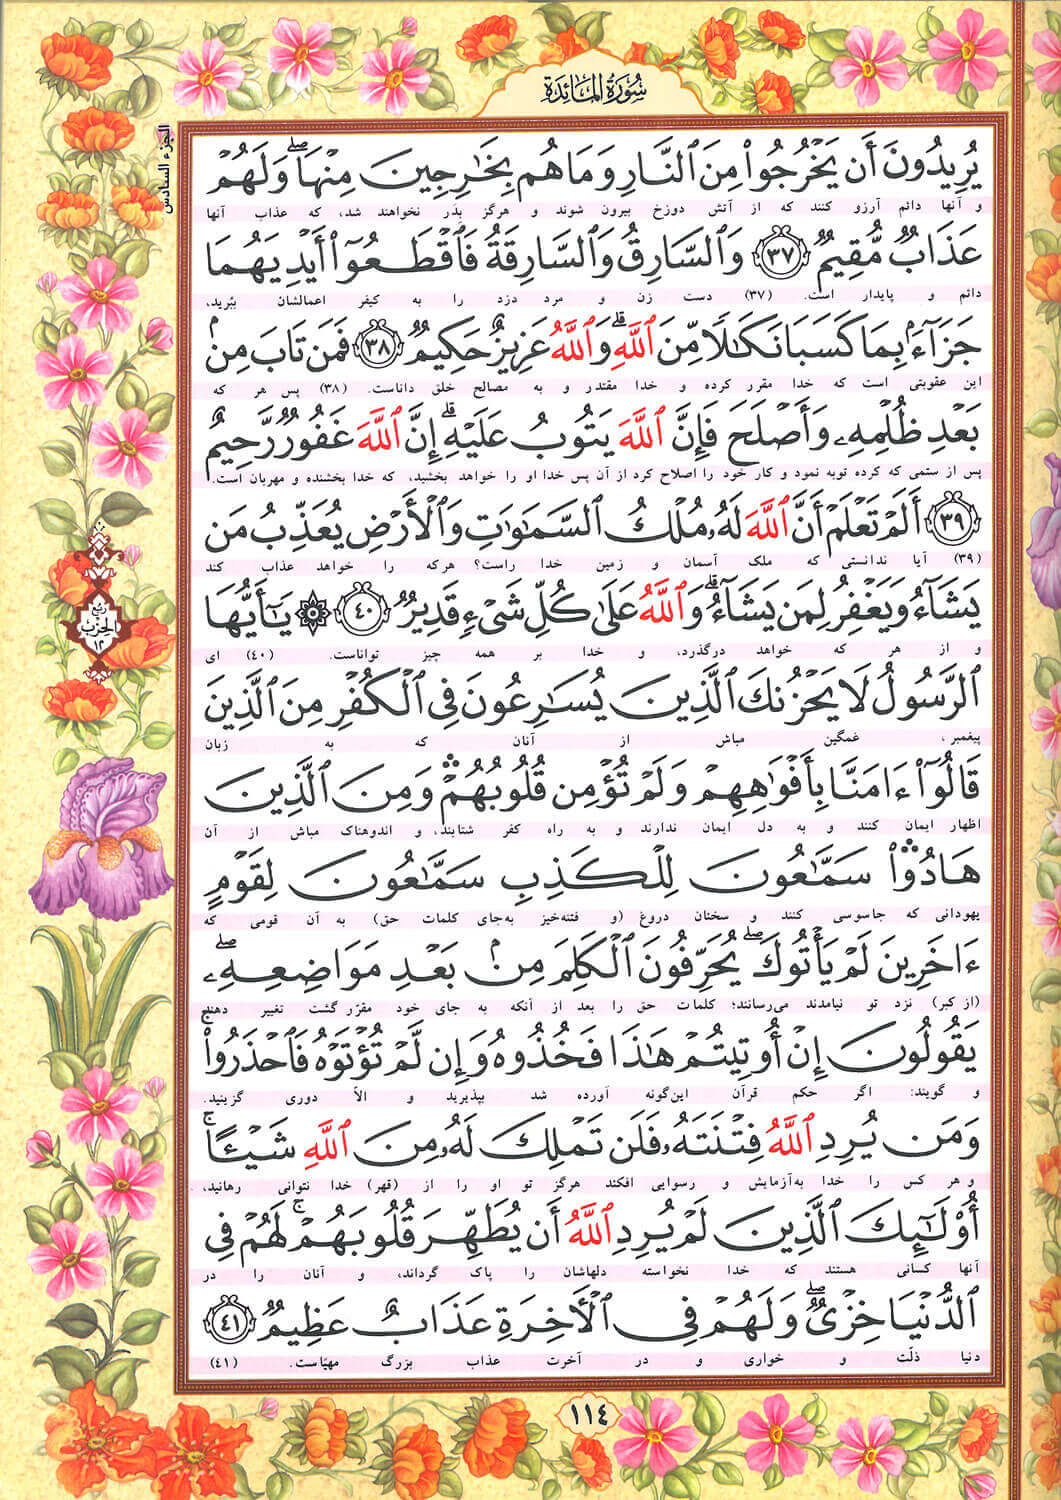 سُورَةُ المَائِدَة
الجزء السادس
يُرِيدُونَ أَن يَخْرُجُوا۟ مِنَ ٱلنَّارِ وَمَا هُم بِخَٰرِجِينَ مِنْهَا ۖ وَلَهُمْ
و آنها دائم آرزو کنند که از آتش دوزخ بیرون شوند و هرگز بدَر نخواهند شد، که عذاب آنها
عَذَابٌ مُّقِيمٌ ﴿٣٧﴾ وَٱلسَّارِقُ وَٱلسَّارِقَةُ فَٱقْطَعُوٓا۟ أَيْدِيَهُمَا
دائم و پایدار است. (۳۷) دست زن و مرد دزد را به کیفر اعمالشان ببُرید،
جَزَآءًۢ بِمَا كَسَبَا نَكَٰلًا مِّنَ ٱللَّهِ ۗ وَٱللَّهُ عَزِيزٌ حَكِيمٌ ﴿٣٨﴾ فَمَن تَابَ مِنۢ
این عقوبتی است که خدا مقرر کرده و خدا مقتدر و به مصالح خلق داناست. (۳۸) پس هر که
بَعْدِ ظُلْمِهِۦ وَأَصْلَحَ فَإِنَّ ٱللَّهَ يَتُوبُ عَلَيْهِ ۗ إِنَّ ٱللَّهَ غَفُورٌ رَّحِيمٌ
پس از ستمی که کرده توبه نمود و کار خود را اصلاح کرد از آن پس خدا او را خواهد بخشید، که خدا بخشنده و مهربان است.
﴿٣٩﴾ أَلَمْ تَعْلَمْ أَنَّ ٱللَّهَ لَهُۥ مُلْكُ ٱلسَّمَٰوَٰتِ وَٱلْأَرْضِ يُعَذِّبُ مَن
(۳۹) آیا ندانستی که ملک آسمان و زمین خدا راست؟ هرکه را خواهد عذاب کند
يَشَآءُ وَيَغْفِرُ لِمَن يَشَآءُ ۗ وَٱللَّهُ عَلَىٰ كُلِّ شَىْءٍ قَدِيرٌ ﴿٤٠﴾ ۞ يَٰٓأَيُّهَا
و از هر که خواهد درگذرد، و خدا بر همه چیز تواناست. (۴۰) ای
ٱلرَّسُولُ لَا يَحْزُنكَ ٱلَّذِينَ يُسَٰرِعُونَ فِى ٱلْكُفْرِ مِنَ ٱلَّذِينَ
پیغمبر، غمگین مباش از آنان که به زبان
قَالُوٓا۟ ءَامَنَّا بِأَفْوَٰهِهِمْ وَلَمْ تُؤْمِن قُلُوبُهُمْ ۛ وَمِنَ ٱلَّذِينَ
اظهار ایمان کنند و به دل ایمان ندارند و به راه کفر شتابند، و اندوهناک مباش از آن
هَادُوا۟ ۛ سَمَّٰعُونَ لِلْكَذِبِ سَمَّٰعُونَ لِقَوْمٍ
یهودانی که جاسوسی کنند و سخنان دروغ (و فتنه‌خیز به‌جای کلمات حق) به آن قومی که
ءَاخَرِينَ لَمْ يَأْتُوكَ ۖ يُحَرِّفُونَ ٱلْكَلِمَ مِنۢ بَعْدِ مَوَاضِعِهِۦ ۖ
(از کبر) نزد تو نیامدند می‌رسانند؛ کلمات حق را بعد از آنکه به جای خود مقرّر گشت تغییر دهند
يَقُولُونَ إِنْ أُوتِيتُمْ هَٰذَا فَخُذُوهُ وَإِن لَّمْ تُؤْتَوْهُ فَٱحْذَرُوا۟ ۚ
و گویند: اگر حکم قرآن این‌گونه آورده شد بپذیرید و الّا دوری گزینید.
وَمَن يُرِدِ ٱللَّهُ فِتْنَتَهُۥ فَلَن تَمْلِكَ لَهُۥ مِنَ ٱللَّهِ شَيْـًٔا ۚ
و هر کس را خدا به‌آزمایش و رسوایی افکند هرگز تو او را از (قهر) خدا نتوانی رهانید،
أُو۟لَٰٓئِكَ ٱلَّذِينَ لَمْ يُرِدِ ٱللَّهُ أَن يُطَهِّرَ قُلُوبَهُمْ ۚ لَهُمْ فِى
آنها کسانی هستند که خدا نخواسته دلهاشان را پاک گرداند، و آنان را در
ٱلدُّنْيَا خِزْىٌ ۖ وَلَهُمْ فِى ٱلْءَاخِرَةِ عَذَابٌ عَظِيمٌ ﴿٤١﴾
دنیا ذلّت و خواری و در آخرت عذاب بزرگ مهیّاست. (۴۱)
ربع
الحزب
١٢
١١٤